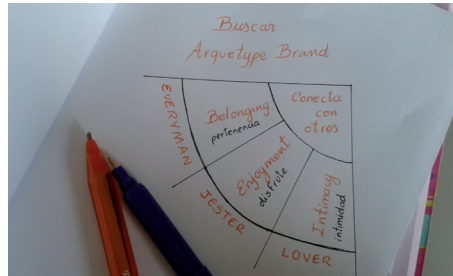 Buscar
Arquetype Brand
EVERYMAN
Belonging
pertenencia
Conecta
con
otros
JESTER
Enjoyment
disfrute
LOVER
Intimacy
intimidad